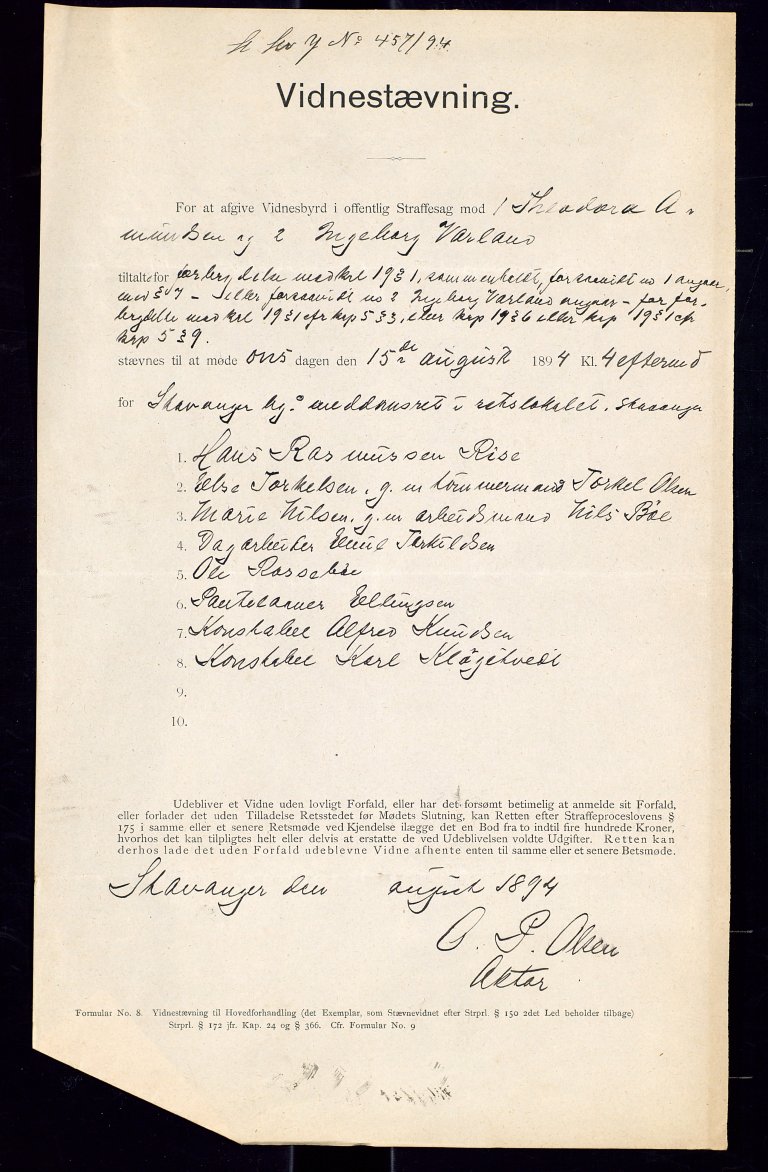 No 457/94
Vidnestævning.
For at afgive Vidnesbyrd i offentlig Straffesag mod 1 Theodora A-
mundsen og 2 Ingeborg Varland
tiltalt for forbrydelse mod krl 19 § 1, sammenholdt, forsaavidt no 1 angaar,
med § 7 – eller forsaavidt no 2 Ingeborg Varland angaar – for for-
brydelse mod krl 19 § 1 cfr kap 5 § 3, eller kap 19 § 6 eller kap 19 § 1 cfr
kap 5 § 9.
stævnes til at møde ons dagen den 15de august 1894 Kl. 4 eftermd
for Stavanger meddomsret i retslokalet, Stavanger
1. Hans Rasmussen Rise
2. Else Torkelsen, g. m tømmermand Torkel Olsen
3. Marie Nilsen, g. m arbeidsmand Nils Bøe
4. Dagarbeider Emil Torkildsen
5. Ole Rossebø
6. Pantelaaner Ellingsen
7. Konstabel Alfred Knudsen
8. Konstabel Karl
9.
10.
Udebliver et Vidne uden lovligt Forfald, eller har det forsømt betimelig at anmelde sit Forfald,
eller forlader det uden Tilladelse Retsstedet før Mødets Slutning, kan Retten efter Straffeproceslovens §
175 i samme eller et senere Retsmøde ved Kjendelse ilægge det en Bod fra to indtil fire hundrede Kroner,
hvorhos det kan tilpligtes helt eller delvis at erstatte de ved Udeblivelsen voldte Udgifter. Retten kan
derhos lade det uden Forfald udeblevne Vidne afhente enten til samme eller et senere Betsmøde.
Stavanger den august 1894
O. P. Olsen
Aktor
Formular No. 8. Vidnestævning til Hovedforhandling (det Exemplar, som Stævnevidnet efter Strprl. § 150 2det Led beholder tilbage)
Strprl. § 172 jfr. Kap. 24 og § 366. Cfr. Formular No. 9